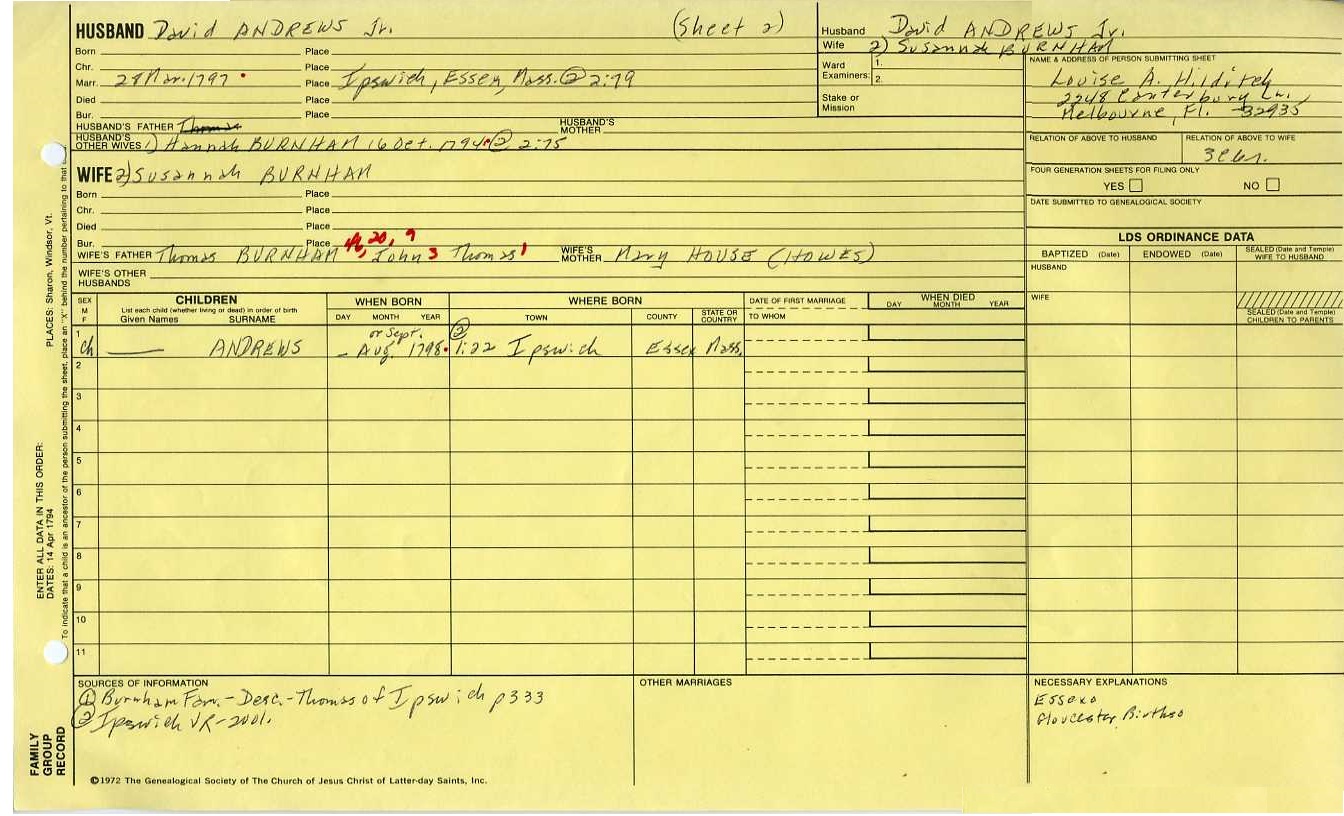 HUSBAND David ANDREWS Jr. (Sheet 2)
Born Place
Chr. Place
Marr. 28 Mar. 1797 Place Ipswich, Essex, Mass. ② 2:79
Died Place
Bur. Place
HUSBAND'S FATHER Thomas HUSBAND'S MOTHER
HUSBAND'S OTHER WIVES 1) Hannah BURNHAM 16 Oct. 1794 ② 2:75
Husband David ANDREWS Jr.
Wife 2) Susannah BURNHAM
Ward Examiners: 1.
2.
Stake or Mission
NAME & ADDRESS OF PERSON SUBMITTING SHEET
Louise A. Hilditch
2248 Canterbury Ln.
Melbourne, Fl. 32935
RELATION OF ABOVE TO HUSBAND RELATION OF ABOVE TO WIFE
FOUR GENERATION SHEETS FOR FILING ONLY
YES NO
DATE SUBMITTED TO GENEALOGICAL SOCIETY
WIFE 2) Susannah BURNHAM
Born Place
Chr. Place
Died Place
Bur. Place
46, 20, 9
WIFE'S FATHER Thomas BURNHAM, John 3 Thomas 1 WIFE'S MOTHER Mary HOUSE (HOWES)
WIFE'S OTHER HUSBANDS
LDS ORDINANCE DATA
BAPTIZED (Date) ENDOWED (Date) SEALED (Date and Temple) WIFE TO HUSBAND
HUSBAND
WIFE
SEALED (Date and Temple) CHILDREN TO PARENTS
SEX M F
CHILDREN
List each child (whether living or dead) in order of birth
Given Names SURNAME
WHEN BORN
DAY MONTH YEAR
WHERE BORN
TOWN COUNTY STATE OR COUNTRY
DATE OF FIRST MARRIAGE
TO WHOM
WHEN DIED
DAY MONTH YEAR
or Sept. ②
1 Ch — ANDREWS - Aug. 1798 1:22 Ipswich Essex Mass.
2
3
4
5
6
7
8
9
10
11
SOURCES OF INFORMATION
① Burnham Fam.-Desc.-Thomas of Ipswich p333
② Ipswich VR-2001.
OTHER MARRIAGES
NECESSARY EXPLANATIONS
Essex
Gloucester Births
©1972 The Genealogical Society of The Church of Jesus Christ of Latter-day Saints, Inc.
FAMILY GROUP RECORD
ENTER ALL DATA IN THIS ORDER:
DATES: 14 Apr 1794
PLACES: Sharon, Windsor, Vt.
To indicate that a child is an ancestor of the person submitting the sheet, place an "X" behind the number pertaining to that